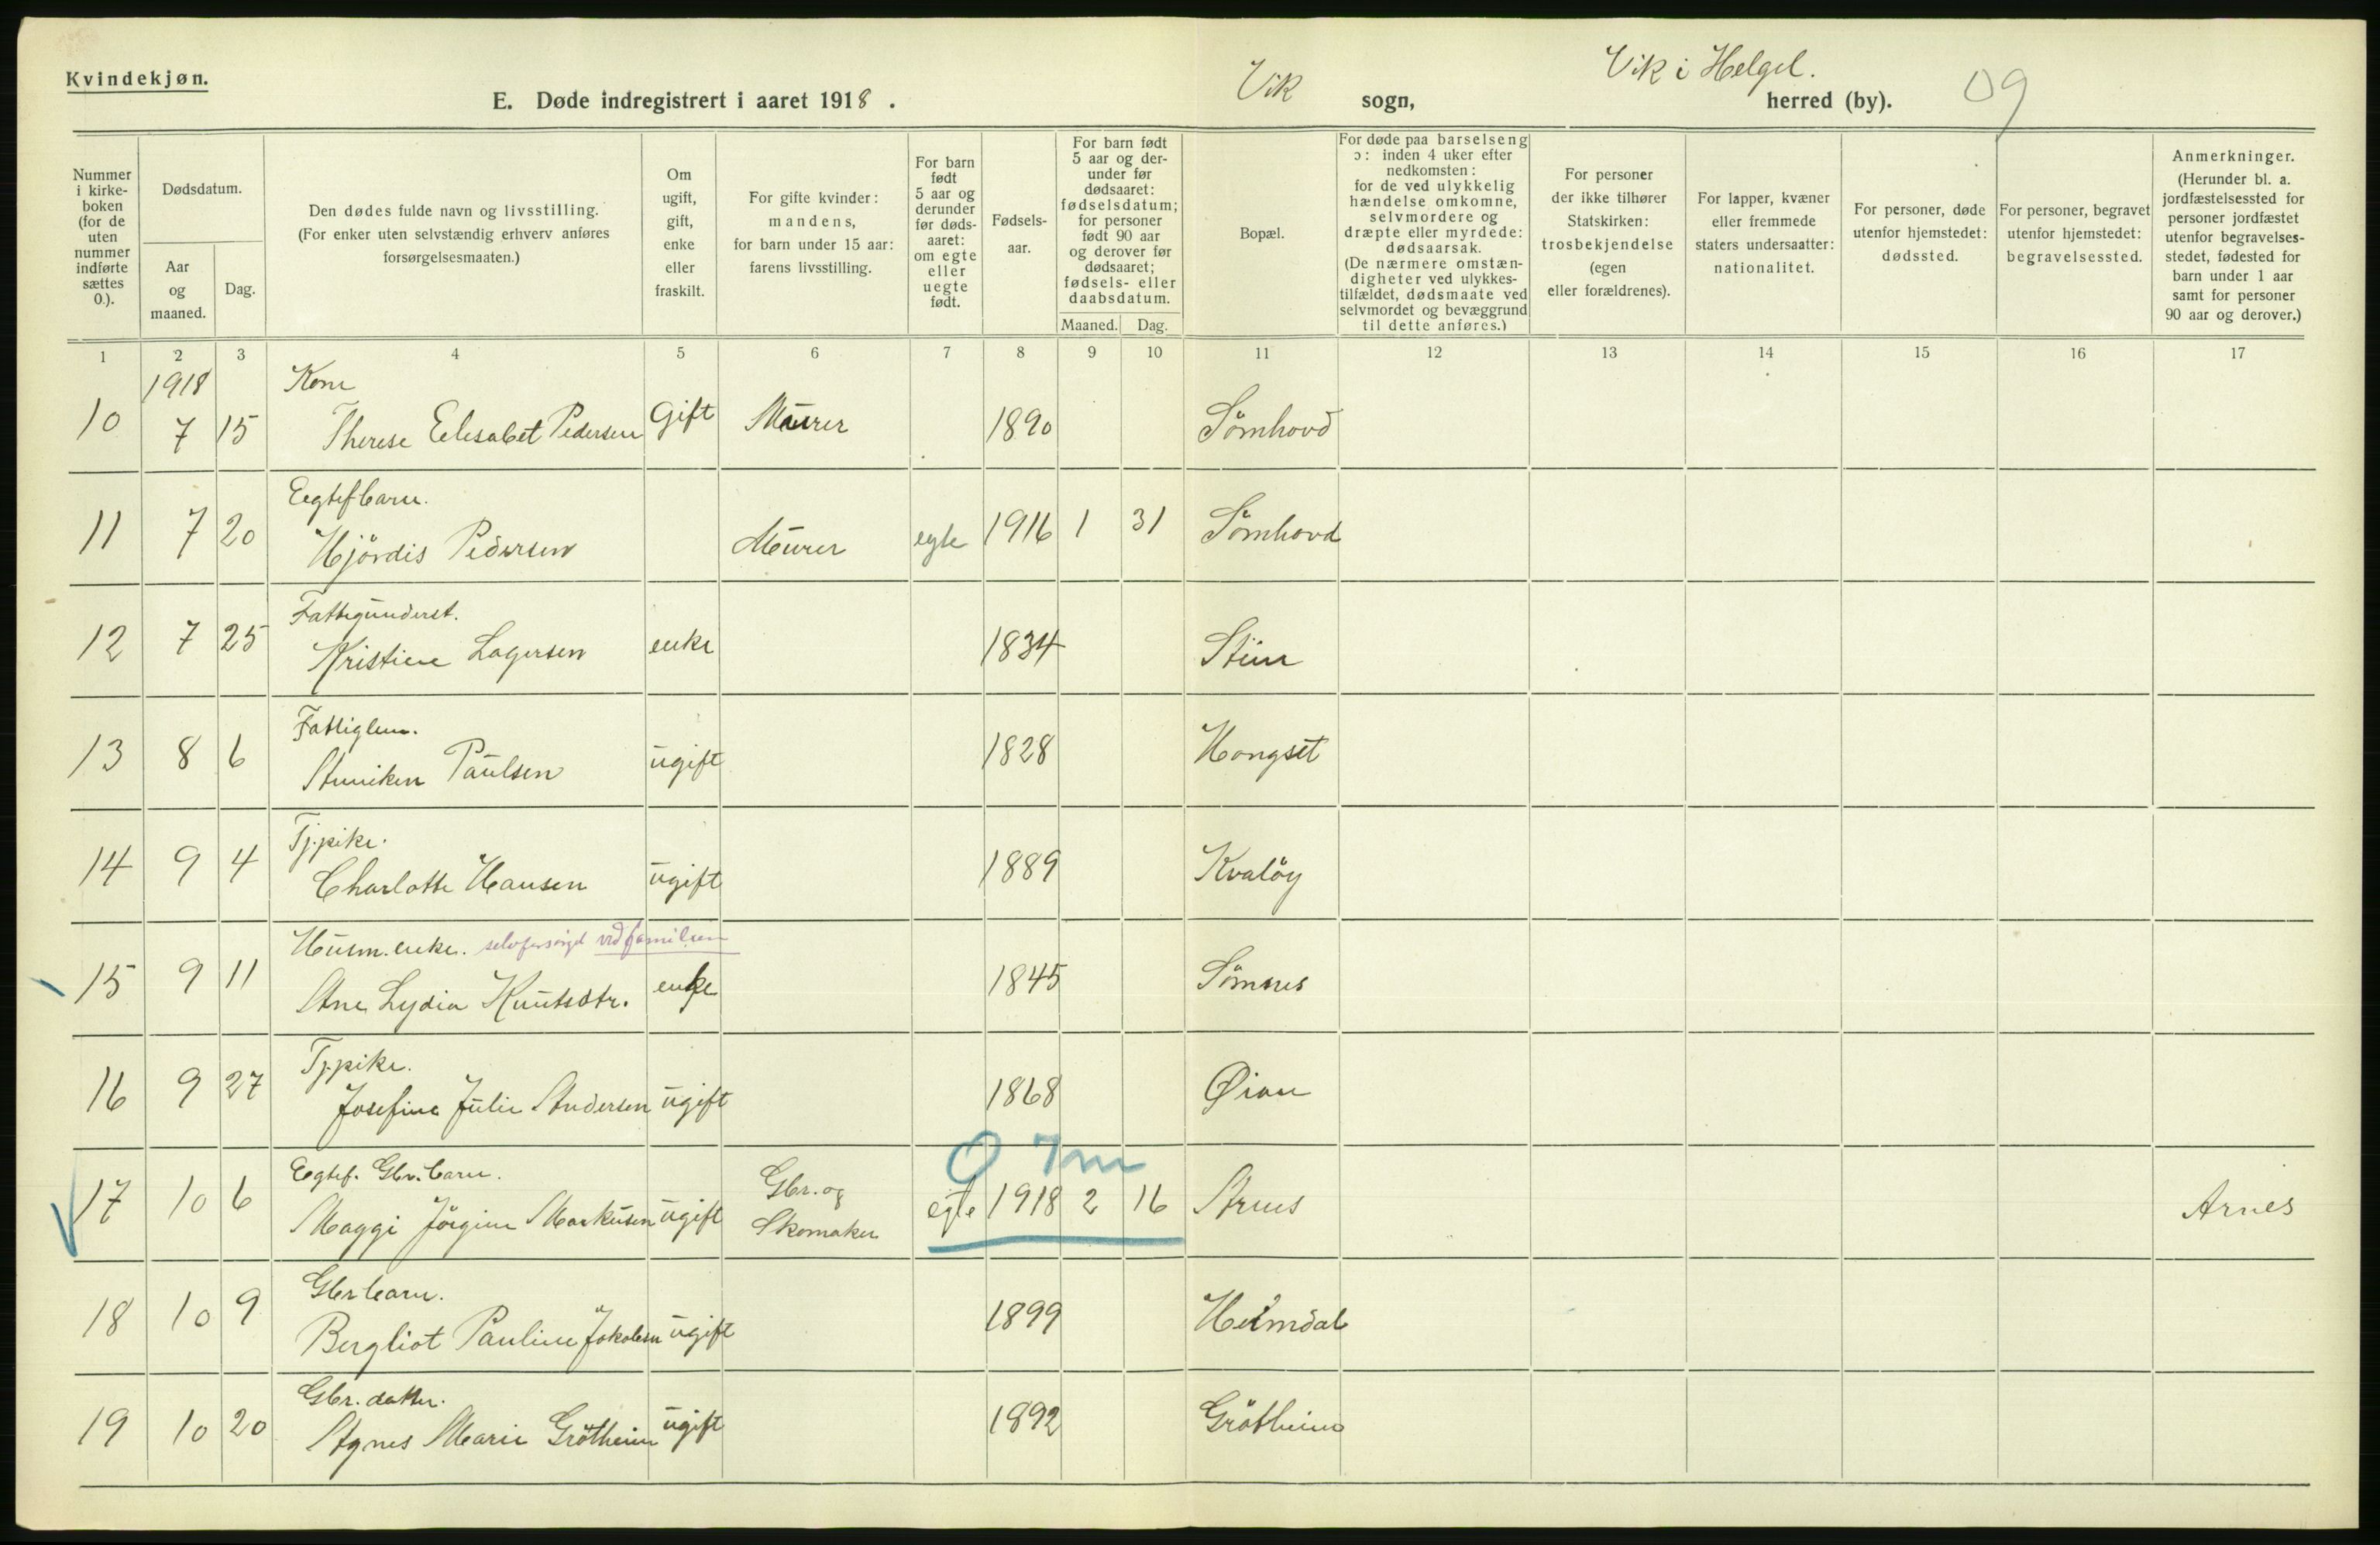 Kvindekjøn.
E. Døde indregistrert i aaret 1918.
Vik sogn,
Vik i Helgel. herred (by).
09
Nummer i kirkeboken (for de uten nummer indførte sættes 0.).
Dødsdatum.
Aar og maaned.
Dag.
Den dødes fulde navn og livsstilling. (For enker uten selvstændig erhverv anføres forsørgelsesmaaten.)
Om ugift, gift, enke eller fraskilt.
For gifte kvinder: mandens, for barn under 15 aar: farens livsstilling.
For barn født 5 aar og derunder før dødsaaret: om egte eller uegte født.
Fødselsaar.
For barn født 5 aar og derunder før dødsaaret: fødselsdatum; for personer født 90 aar og derover før dødsaaret; fødsels- eller daabsdatum.
Maaned. Dag.
Bopæl.
For døde paa barselseng ɔ: inden 4 uker efter nedkomsten: for de ved ulykkelig hændelse omkomne, selvmordere og dræpte eller myrdede: dødsaarsak. (De nærmere omstændigheter ved ulykkestilfældet, dødsmaate ved selvmordet og bevæggrund til dette anføres.)
For personer der ikke tilhører Statskirken: trosbekjendelse (egen eller forældrenes).
For lapper, kvæner eller fremmede staters undersaatter: nationalitet.
For personer, døde utenfor hjemstedet: dødssted.
For personer, begravet utenfor hjemstedet: begravelsessted.
Anmerkninger. (Herunder bl. a. jordfæstelsessted for personer jordfæstet utenfor begravelsesstedet, fødested for barn under 1 aar samt for personer 90 aar og derover.)
1 2 3 4 5 6 7 8 9 10 11 12 13 14 15 16 17
1918 Kone
10 7 15 Therese Elesabet Pedersen Gift Murer 1890 Sömhovd
Egtef barn.
11 7 20 Hjördis Pedersen Murer egte 1916 1 31 Sömhovd
Fattigunderst.
12 7 25 Kristine Lagersen enke 1834
Fattiglem.
13 8 6 Anniken Paulsen ugift 1828 Hongset
Tj.pike.
14 9 4 Charlotte Hansen ugift 1889 Kvalöy
Husm. enke. selvforsørget ved familien
15 9 11 Ane Lydia Knutsdtr. enke 1845 Sömnes
Tj.pike.
16 9 27 Josefine Julie Andersen ugift 1868 Øian
Egtef. Gbr. barn. 0 7m
17 10 6 Maggi Jörgine Markusen ugift Gbr. og Skomaker egte 1918 2 16 Arnes Arnes
Gbr barn.
18 10 9 Bergliot Pauline Jakobsen ugift 1899 Heimdal
Gbr. datter.
19 10 20 Agnes Marie Grötheim ugift 1892 Grötheim